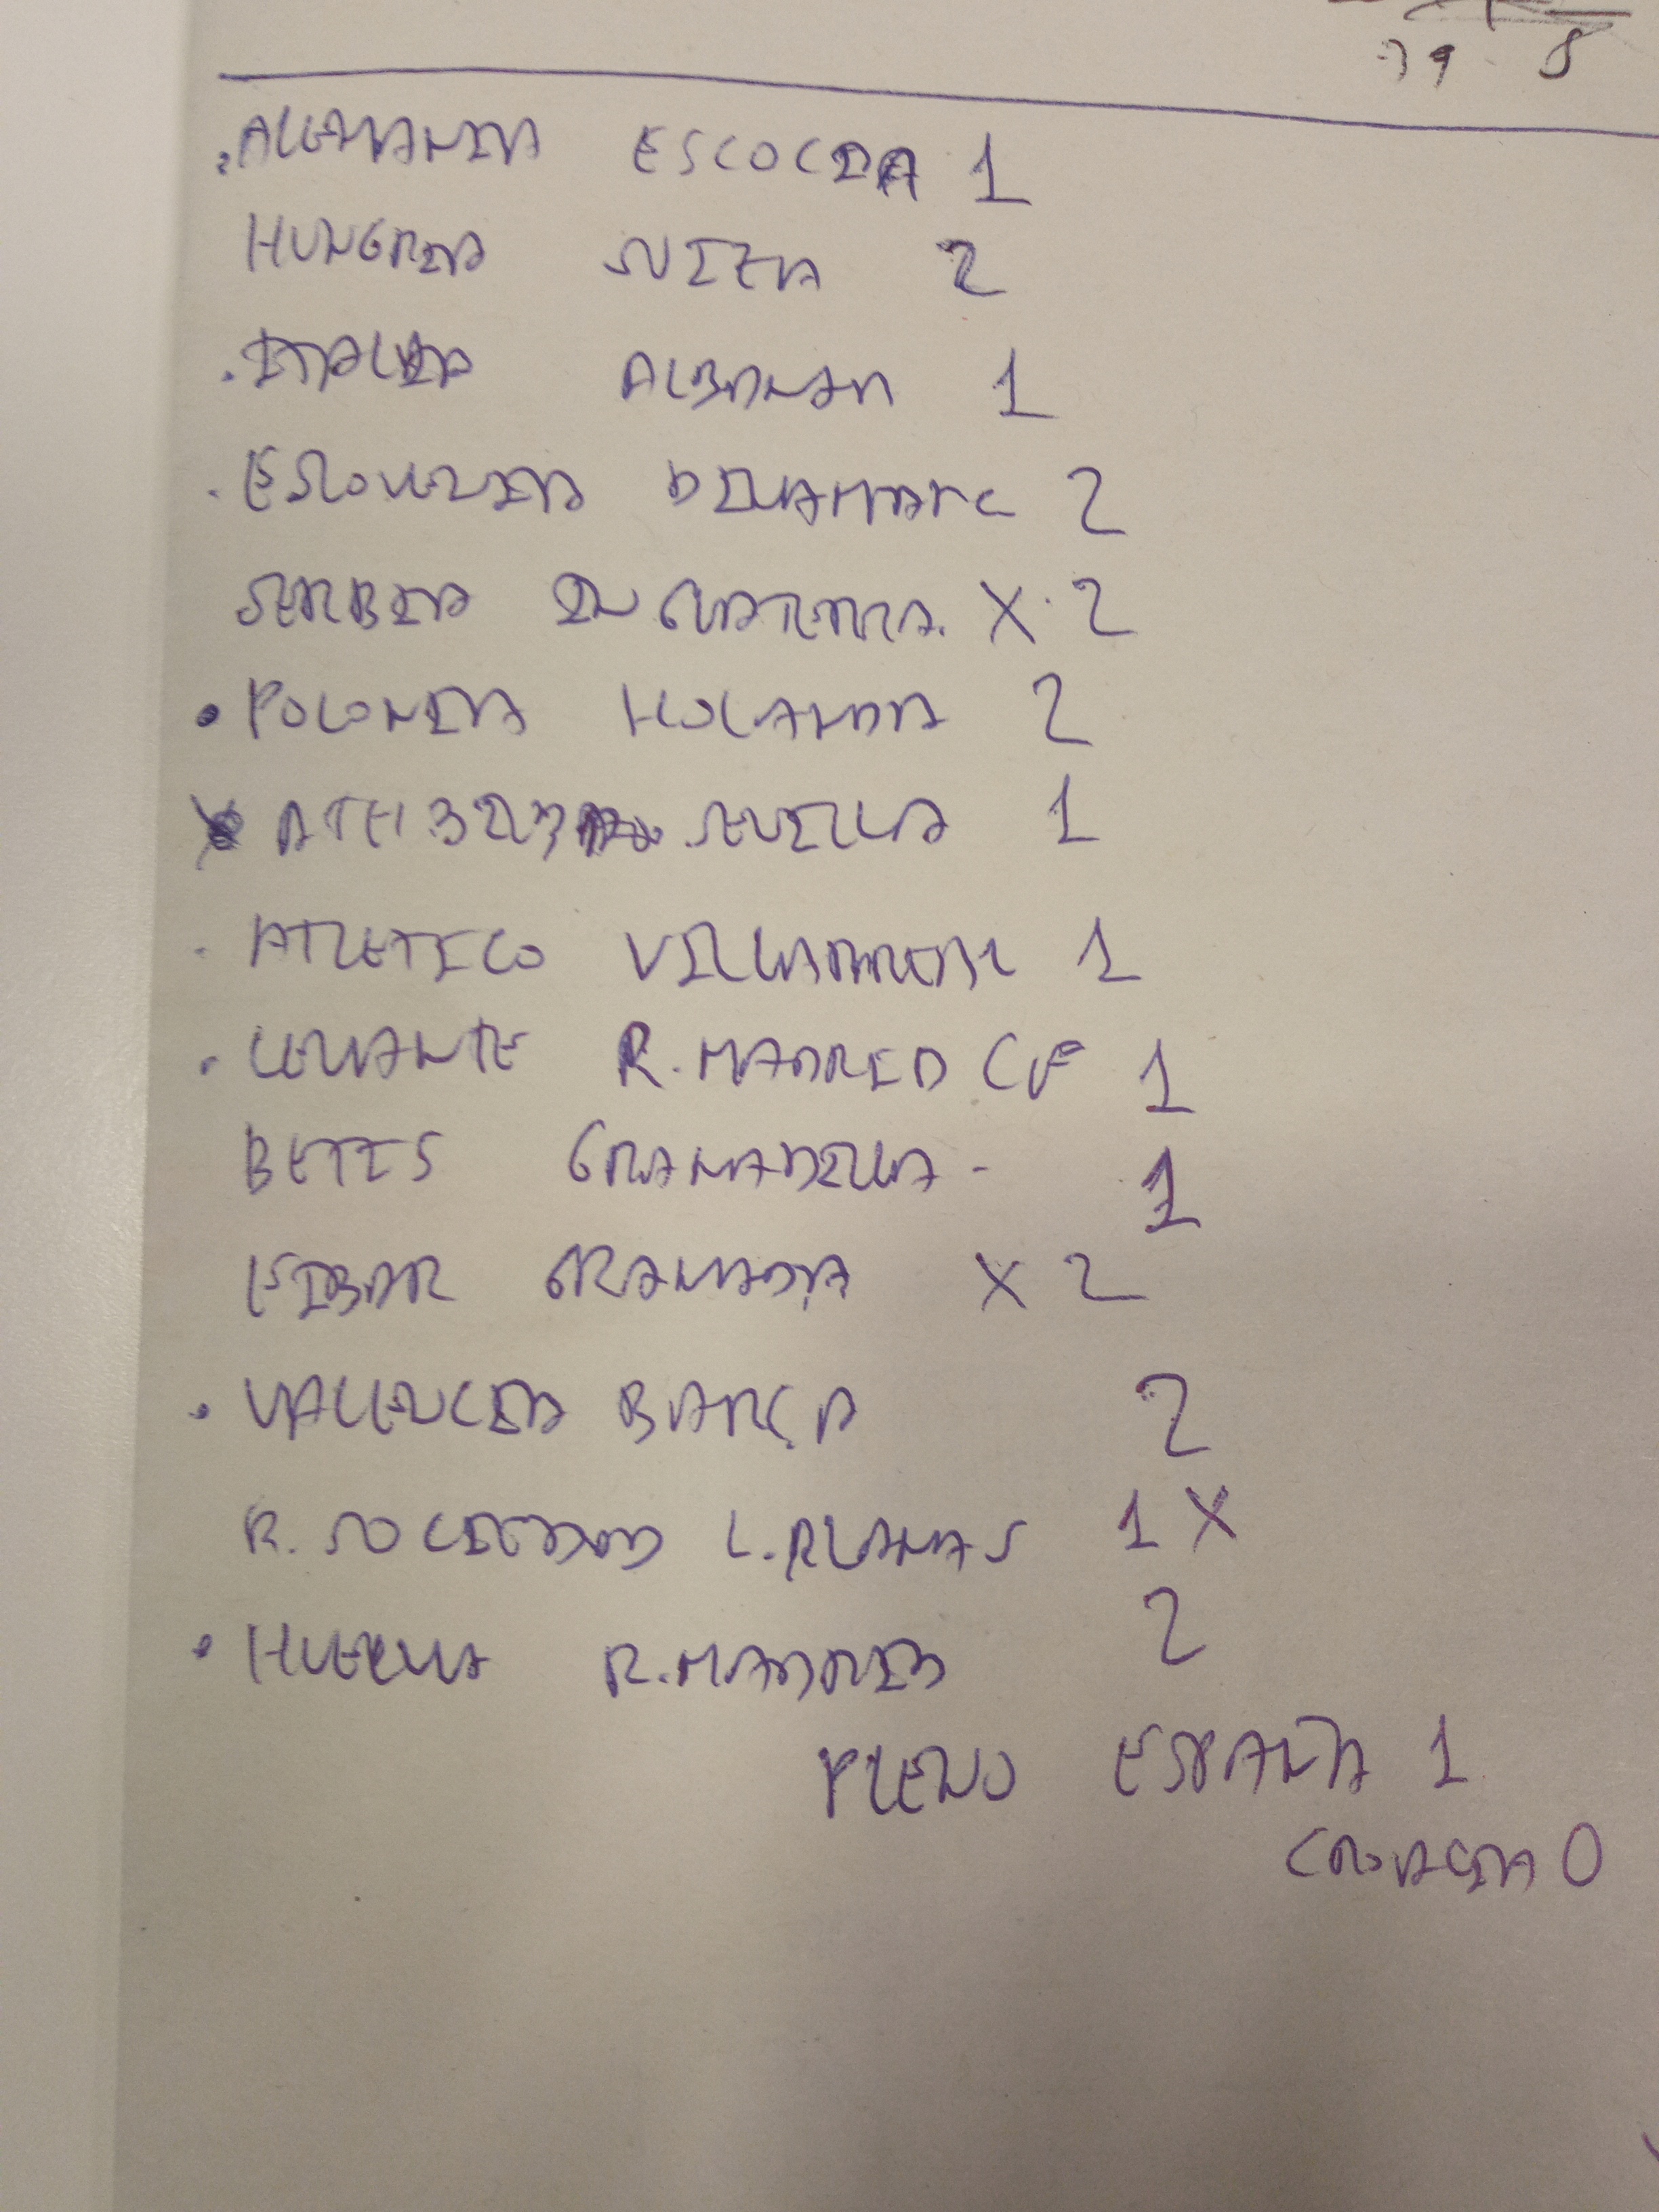 79 8
ALEMANIA ESCOCIA 1
HUNGRIA SUIZA 2
ITALIA ALBANIA 1
ESLOVENIA DINAMARC 2
SERBIA INGLATERRA. X 2
POLONIA HOLANDA 2
ATH SEVILLA 1
ATLETICO VILLARREAL 1
LEVANTE R. MADRID CF 1
BETIS GRANADILLA - 1
EIBAR GRANADA X 2
VALENCIA BARÇA 2
R. SOCIEDAD L. PLANAS 1 X
HUELVA R. MADRID 2
PLENO ESPAÑA 1
CROACIA 0